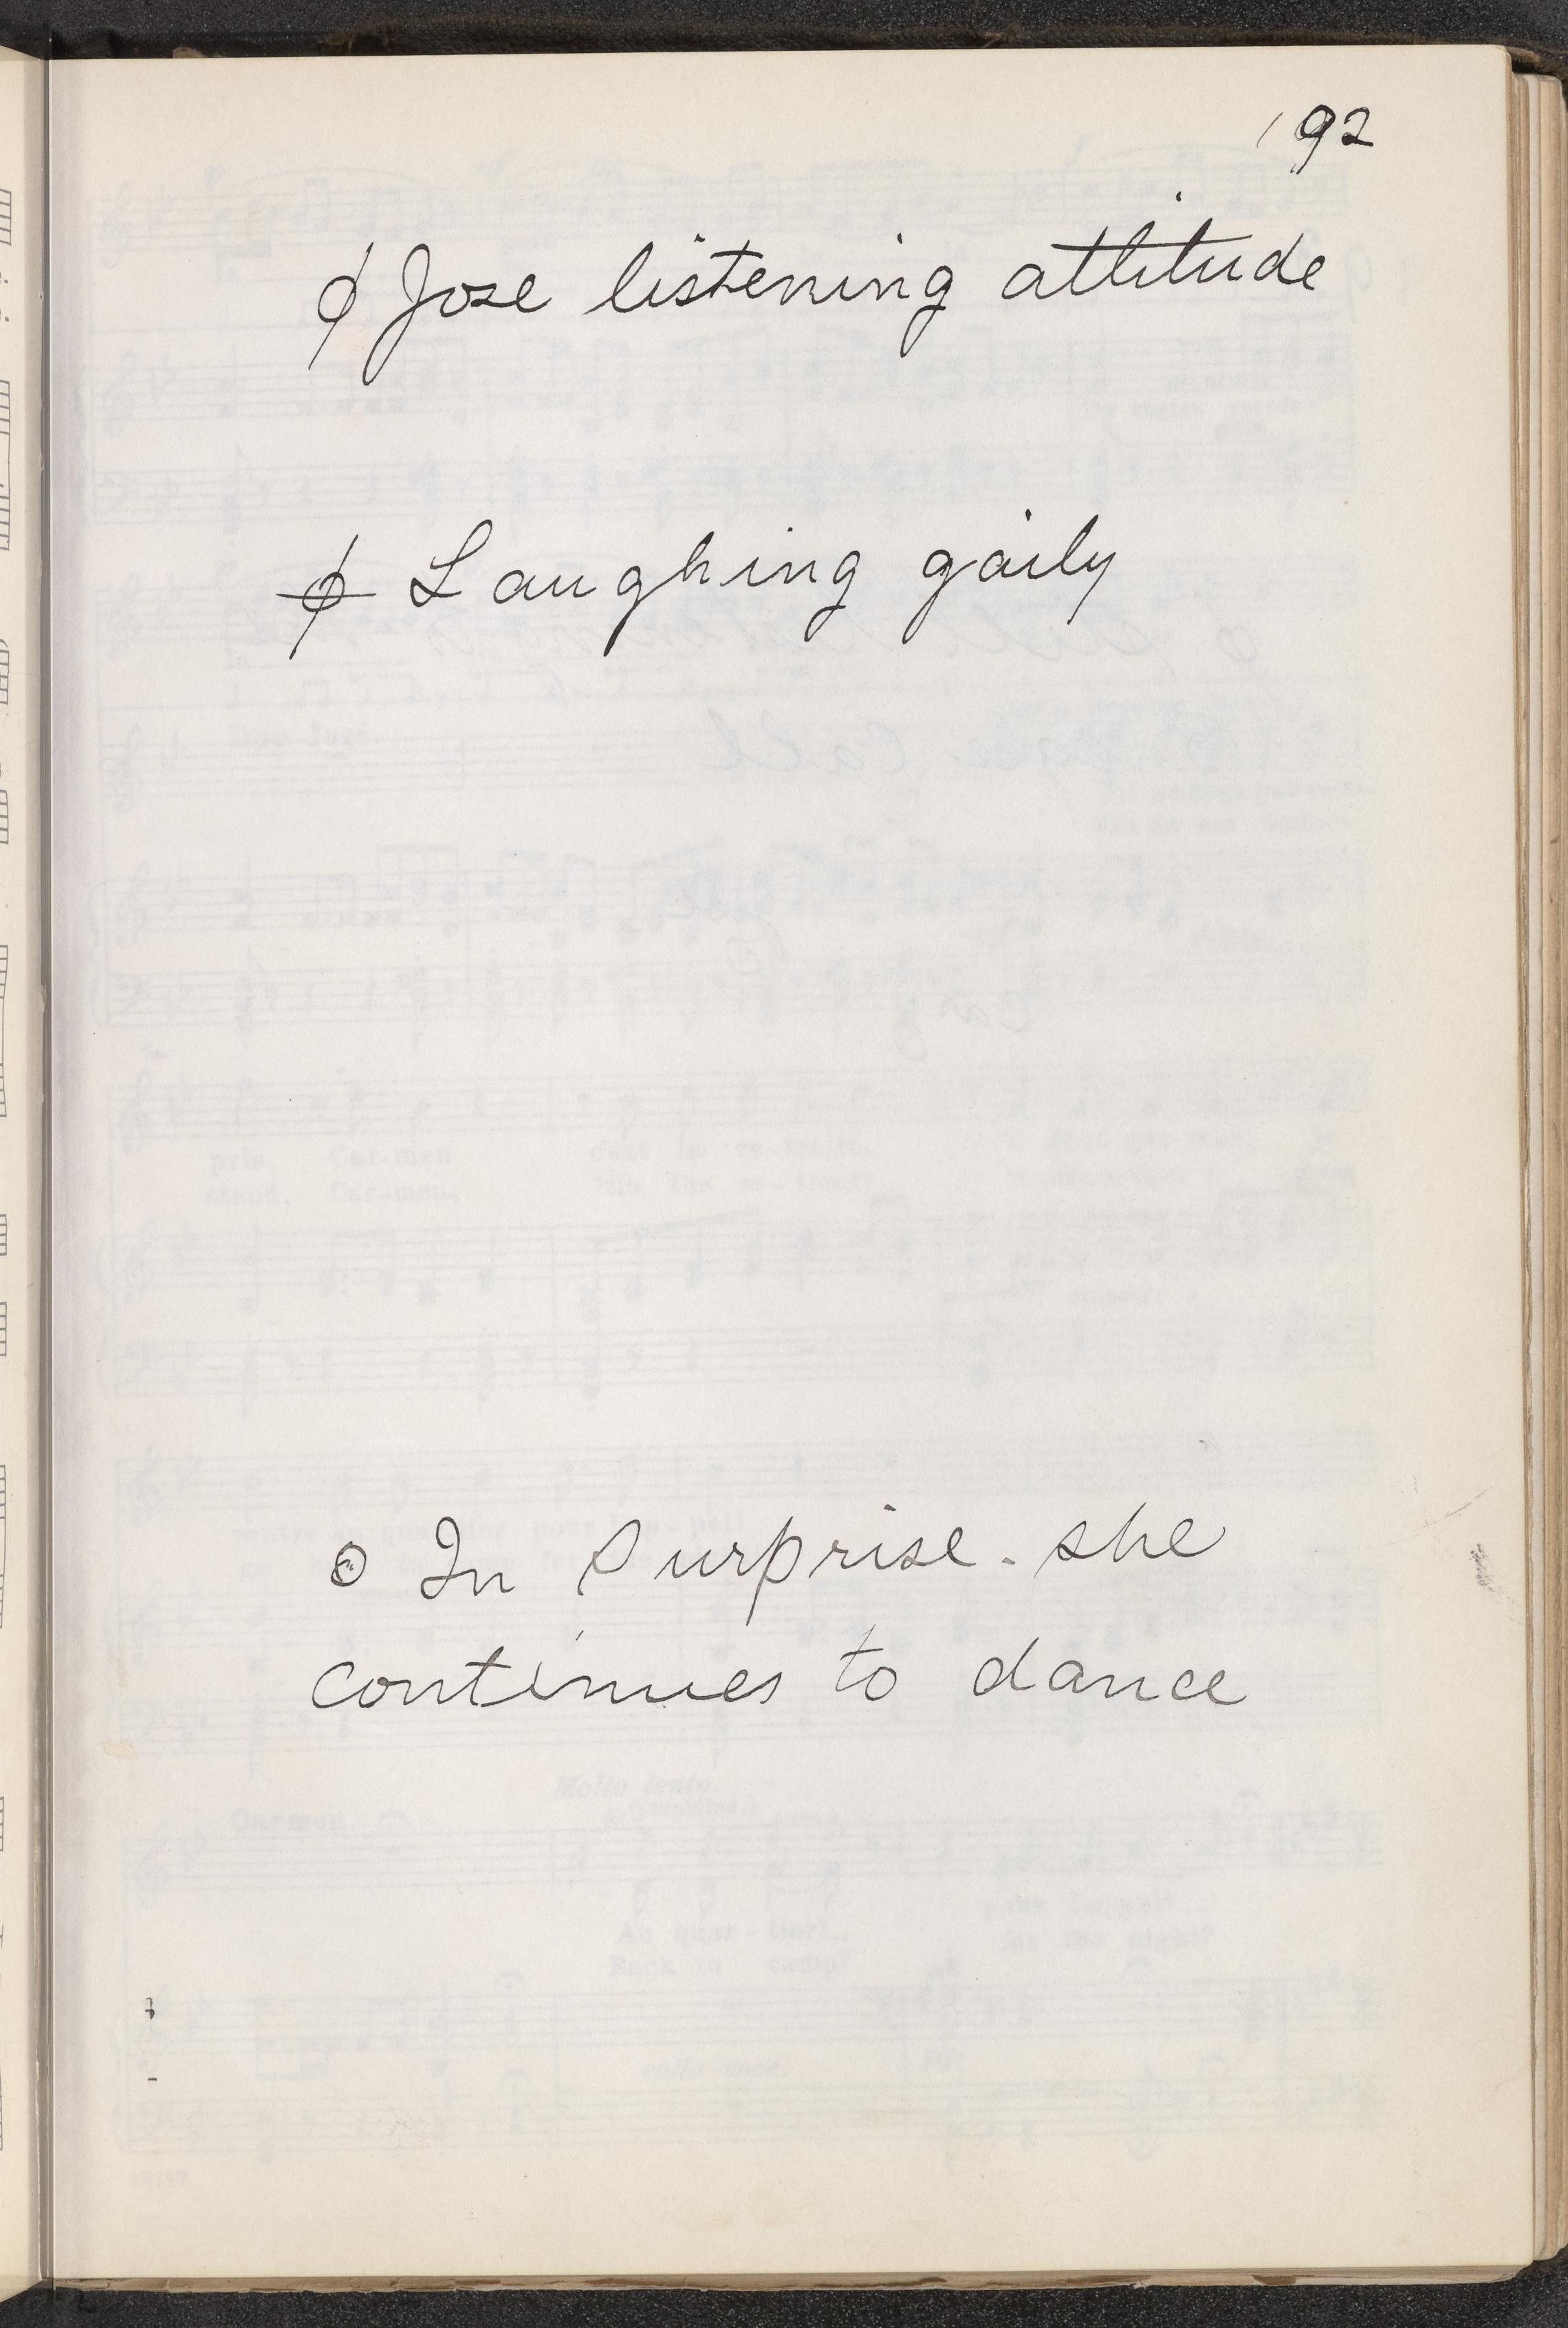 192
ϕ Jose listening attitude
ϕ Laughing gaily
⊙ In Surprise. she
continues to dance